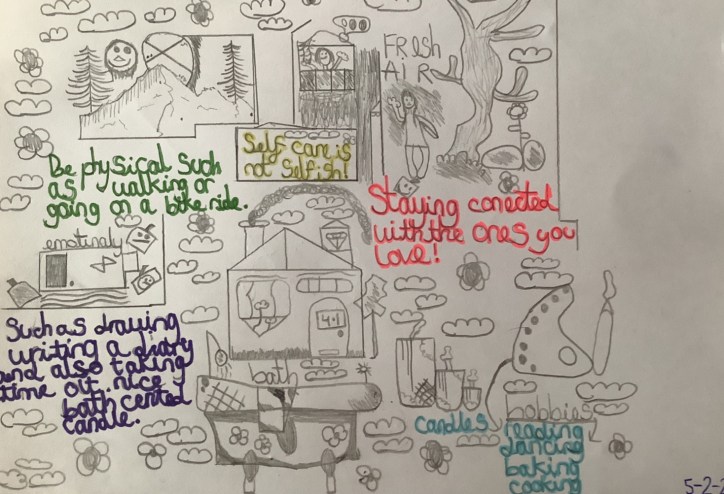 FRESH
AIR
Self care is
not Selfish!
Be physical such
as walking or
going on a bike ride.
Staying conected
with the ones you
love!
emotinaly
Such as drawing
writing a diary
and also taking
time out. nice
bath cented
candle.
bath
candles
hobbies
reading
dancing
baking
cooking
5-2-2